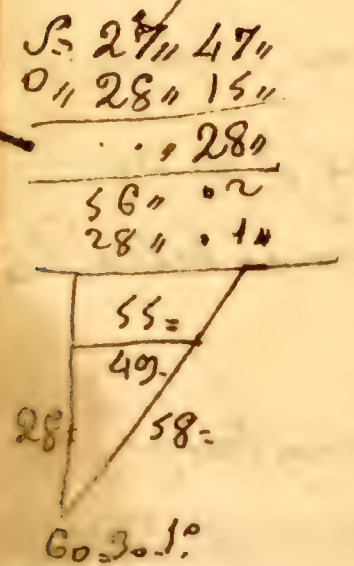 S= 27„ 47„
0„ 28„ 15„
. . , 28„
56„ .2
28„ . 1„
55=
49-
28 58=
60=30.1°